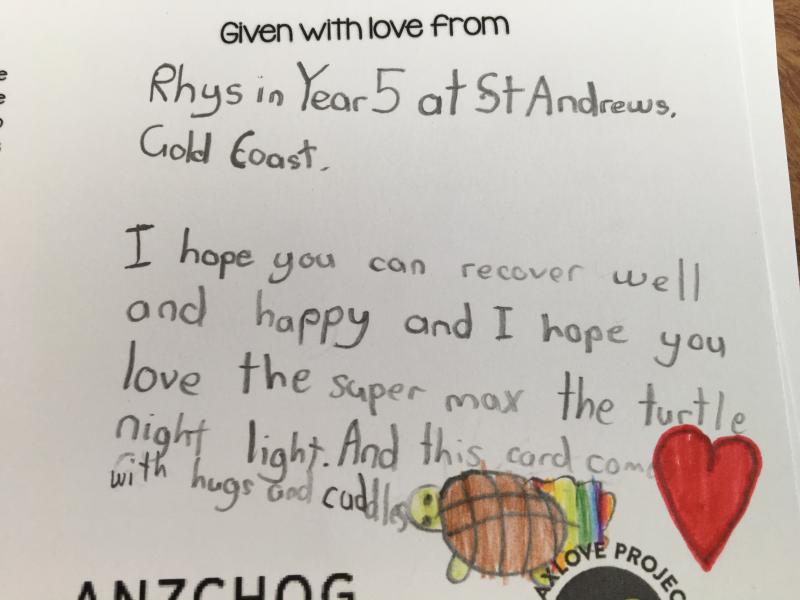 Given with love from
Rhys in Year 5 at St Andrews.
Gold Coast.
I hope you can recover well
and happy and I hope you
love the super max the turtle
night light. And this card come
with hugs and cuddles
AXLOVE PROJEC
ANZCHOG